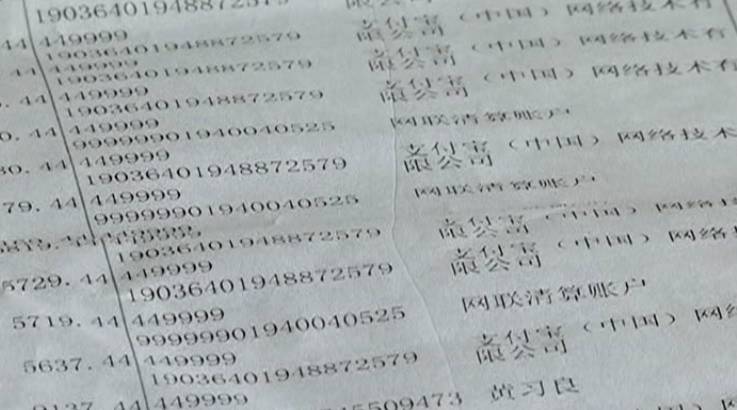 19036401948872579
限公司
44 449999
19036401948872579
支付宝（中国）网络技术有
限公司
44 449999
19036401948872579
支付宝（中国）网络技术有
限公司
. 44 449999
19036401948872579
支付宝（中国）网络技术有
限公司
0. 44 449999
99999901940040525
网联清算账户
80. 44 449999
19036401948872579
支付宝（中国）网络技术
限公司
79. 44 449999
99999901940040525
网联清算账户
19036401948872579
支付宝（中国）网络技
限公司
5729. 44 449999
19036401948872579
支付宝（中国）网络
限公司
5719. 44 449999
99999901940040525
网联清算账户
5637. 44 449999
19036401948872579
支付宝（中国）网络
限公司
44 449999
5509473 黄习良